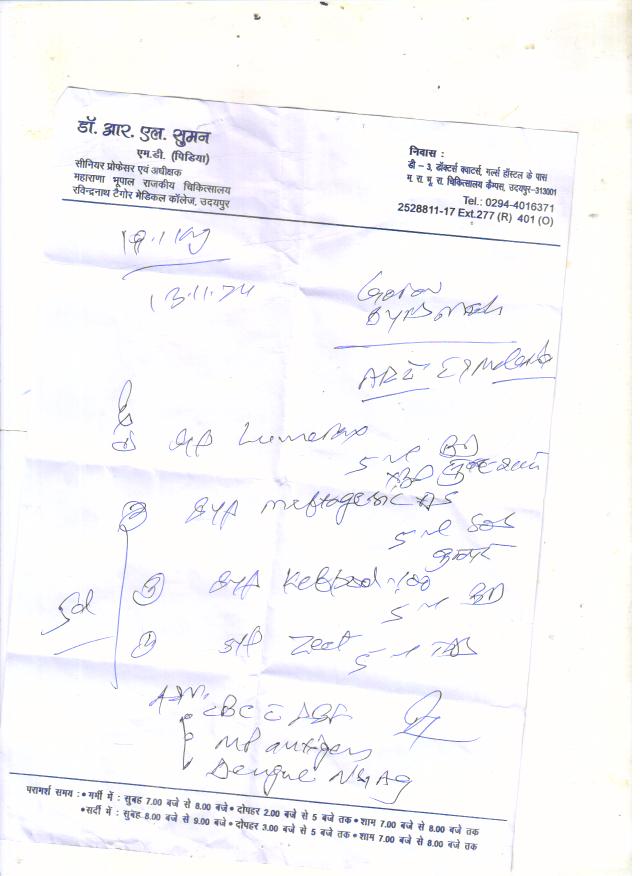 डॉ. आर. एल. सुमन
एम.डी. (पिडिया)
सीनियर प्रोफेसर एवं अधीक्षक
महाराणा भूपाल राजकीय चिकित्सालय
रविन्द्रनाथ टैगोर मेडिकल कॉलेज, उदयपुर
निवास :
डी – 3, डॉक्टर्स क्वाटर्स, गर्ल्स हॉस्टल के पास
म. रा. भू. रा. चिकित्सालय कैम्पस, उदयपुर-313001
Tel.: 0294-4016371
2528811-17 Ext.277 (R) 401 (O)
19.1 kg
13.11.24
① syp
5 ml BD
② syp meftagesic DS
5 ml SOS
③ syp
5 ml BD
④ syp Zeet
5 ml TDS
5d
CBC
MP antigen
Dengue NS1 Ag
परामर्श समय : • गर्मी में : सुबह 7.00 बजे से 8.00 बजे • दोपहर 2.00 बजे से 5 बजे तक • शाम 7.00 बजे से 8.00 बजे तक
• सर्दी में : सुबह 8.00 बजे से 9.00 बजे • दोपहर 3.00 बजे से 5 बजे तक • शाम 7.00 बजे से 8.00 बजे तक